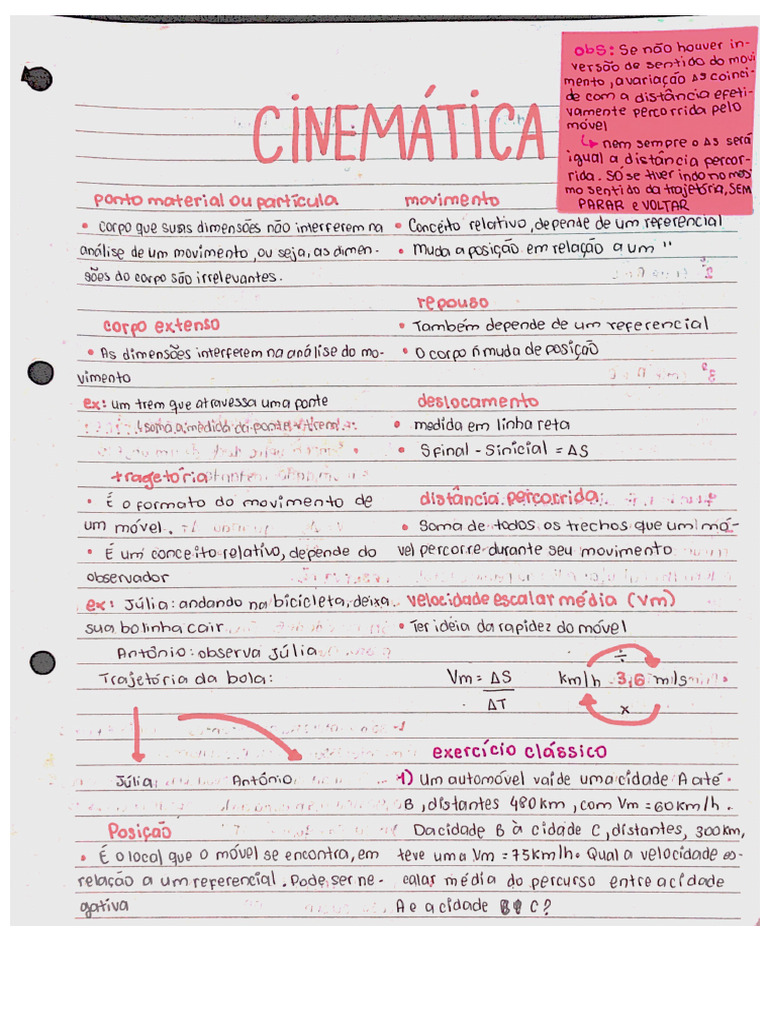 CINEMÁTICA
obs: Se não houver in-
versão de sentido do movi
mento, a variação ΔS coinci-
de com a distância efeti-
vamente percorrida pelo
móvel
↳ nem sempre o ΔS será
igual a distância percor-
rida. Só se tiver indo no mes
mo sentido da trajetória, SEM
PARAR e VOLTAR
ponto material ou partícula
• corpo que suas dimensões não interferem na
análise de um movimento, ou seja, as dimen-
sões do corpo são irrelevantes.
corpo extenso
• As dimensões interferem na análise do mo-
vimento
ex: um trem que atravessa uma ponte
↳ soma a medida da ponte + trem
tragetória
• É o formato do movimento de
um móvel.
• É um conceito relativo, depende do
observador
ex: Júlia: andando na bicicleta, deixa
sua bolinha cair
Antônio: observa Júlia
Trajetória da bola:
Júlia
Antônio
Posição
• É o local que o móvel se encontra, em
relação a um referencial. Pode ser ne-
gativa
movimento
• Conceito relativo, depende de um referencial
• Muda a posição em relação a um "
repouso
• Também depende de um referencial
• O corpo ñ muda de posição
deslocamento
• medida em linha reta
• Sfinal - Sinicial = ΔS
distância percorrida
• Soma de todos os trechos que um mó-
vel percorre durante seu movimento
velocidade escalar média (Vm)
• Ter idéia da rapidez do móvel
Vm = ΔS
ΔT
÷
km/h 3,6 m/s
x
exercício clássico
1) Um automóvel vai de uma cidade A até
B, distantes 480 km, com Vm = 60 km/h.
Da cidade B à cidade C, distantes, 300 km,
teve uma Vm = 75 km/h. Qual a velocidade es-
calar média do percurso entre a cidade
A e a cidade C?